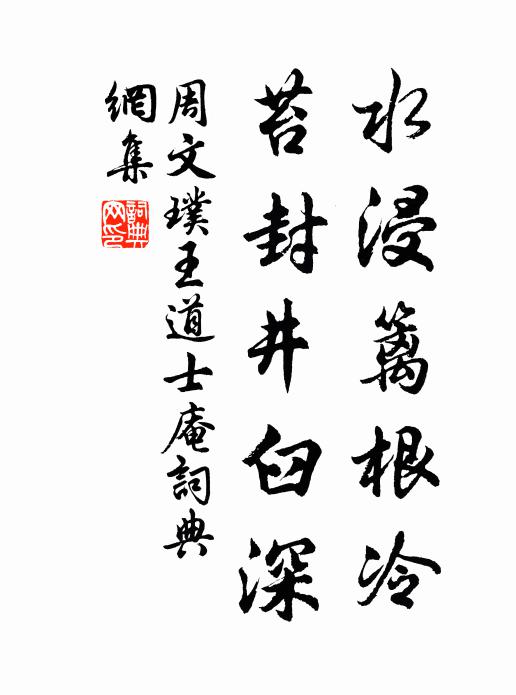 水浸籬根冷
苔封井臼深
周文璞王道士庵詞典
網集
詞典網印